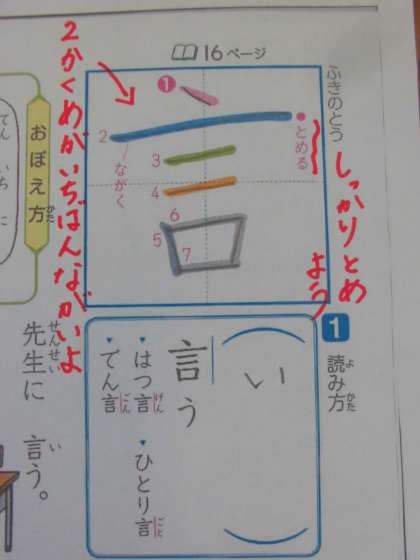 16ページ
ふきのとう
1
2
3
4
5
6
7
とめる
ながく
しっかりとめ
よう
2かくめがいちばんながいよ
おぼえ方
かた
てん いち に
1
読み方
よ
かた
い
言う
はつ言
げん
ひとり言
ごと
でん言
ごん
先生に 言う。
せんせい
い